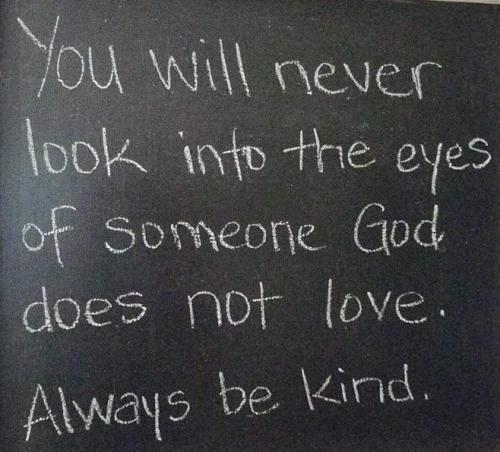 You will never
look into the eyes
of someone God
does not love.
Always be kind.